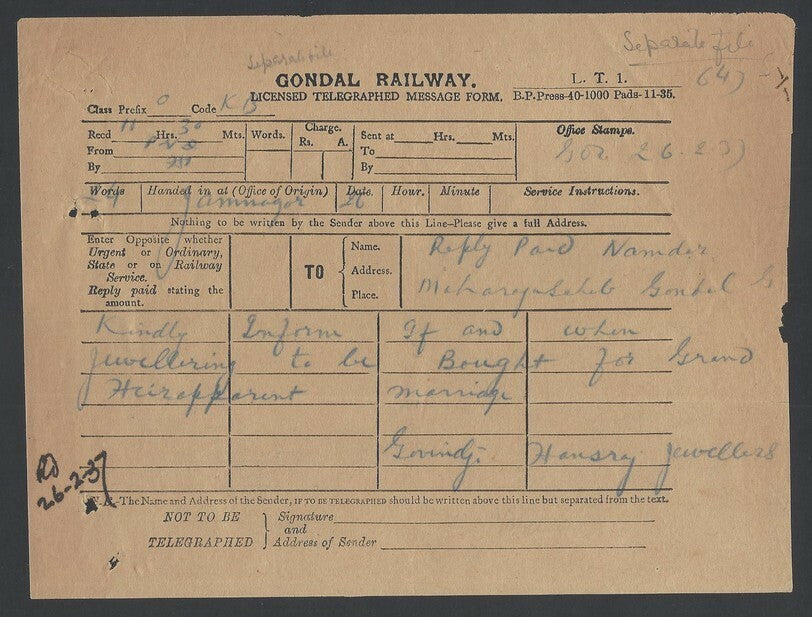 Separate file
Separate file
GONDAL RAILWAY.
L. T. 1.
(4)
LICENSED TELEGRAPHED MESSAGE FORM.
B.P.Press-40-1000 Pads-11-35.
Class Prefix O Code KB
Recd 11 Hrs. 30 Mts. Words. Charge. Rs. A. Sent at Hrs. Mts. Office Stamps.
From To
By By
26.2.37
Words Handed in at (Office of Origin) Date. Hour. Minute Service Instructions.
Jamnagar 26
Nothing to be written by the Sender above this Line-Please give a full Address.
Enter Opposite whether
Urgent or Ordinary,
State or on Railway
Service.
Reply paid stating the
amount.
TO
Name.
Address.
Place.
Reply Paid Namder
Maharaja Saheb Gondal
Kindly Inform If and when
Jewellering to be Bought for Grand
Heirapparent marriage
Govindji Hansraj Jewellers
26-2-37
N. B.-The Name and Address of the Sender, IF TO BE TELEGRAPHED should be written above this line but separated from the text.
NOT TO BE
TELEGRAPHED
Signature
and
Address of Sender